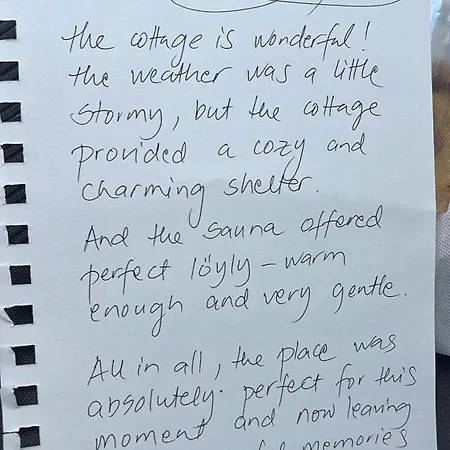 the cottage is wonderful!
the weather was a little
stormy, but the cottage
provided a cozy and
charming shelter.
And the sauna offered
perfect löyly – warm
enough and very gentle.
All in all, the place was
absolutely perfect for this
moment and now leaving
memories